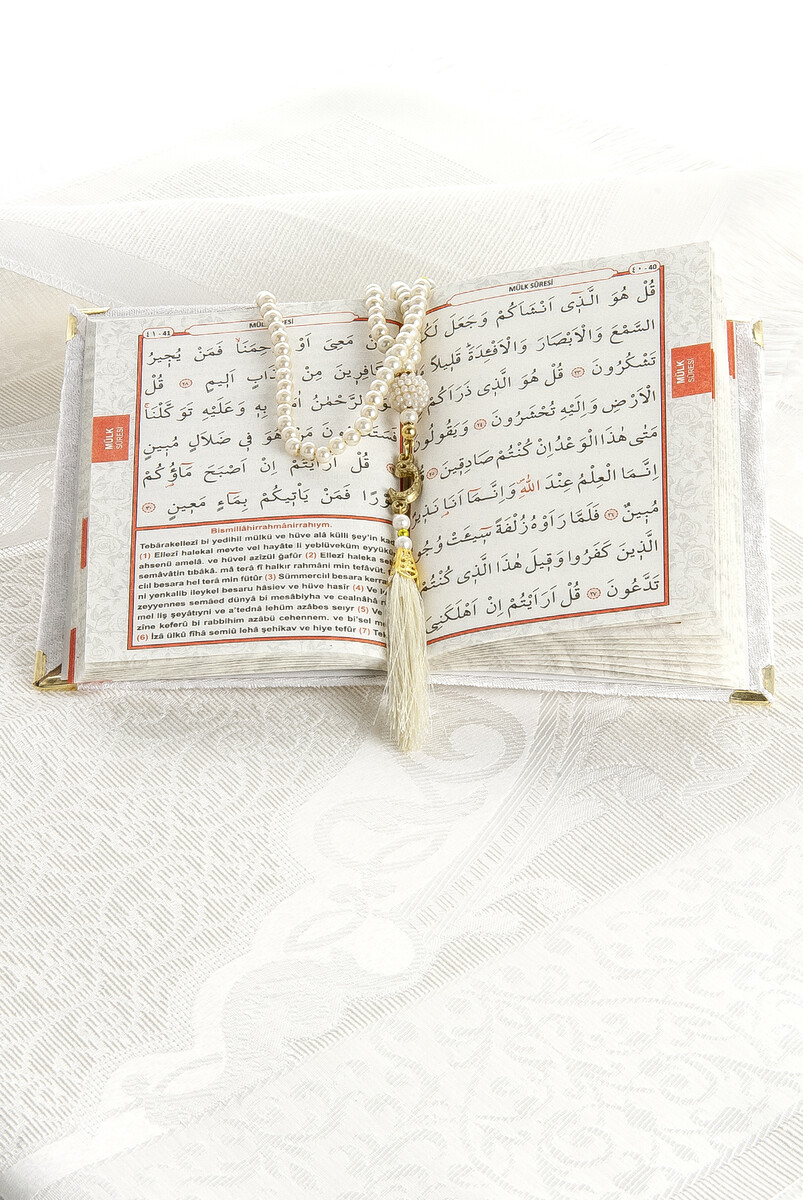 ٤٠ - 40
MÜLK SÛRESİ
قُلْ هُوَ الَّذ۪ٓي اَنْشَاَكُمْ وَجَعَلَ لَكُمُ
السَّمْعَ وَالْاَبْصَارَ وَالْاَفْـِٔدَةَۜ قَل۪يلاً مَا
تَشْكُرُونَ ﴿٢٣﴾ قُلْ هُوَ الَّذ۪ي ذَرَاَكُمْ
الْاَرْضِ وَاِلَيْهِ تُحْشَرُونَ ﴿٢٤﴾ وَيَقُولُونَ
مَتٰى هٰذَا الْوَعْدُ اِنْ كُنْتُمْ صَادِق۪ينَ ﴿٢٥﴾
اِنَّمَا الْعِلْمُ عِنْدَ اللّٰهِۖ وَاِنَّـمَٓا اَنَا۬ نَذ۪يرٌ
مُب۪ينٌ ﴿٢٦﴾ فَلَمَّا رَاَوْهُ زُلْفَةً س۪ٓيـَٔتْ وُجُوهُ
الَّذ۪ينَ كَفَرُوا وَق۪يلَ هٰذَا الَّذ۪ي كُنْتُمْ
تَدَّعُونَ ﴿٢٧﴾ قُلْ اَرَاَيْتُمْ اِنْ اَهْلَكَنِيَ
MÜLK
SÛRESİ
٤١ - 41
MÜLK SÛRESİ
مَعِيَ اَوْ رَحِمَنَاۙ فَمَنْ يُج۪يرُ
الْكَافِر۪ينَ مِنْ عَذَابٍ اَل۪يمٍ ﴿٢٨﴾ قُلْ
هُوَ الرَّحْمٰنُ اٰمَنَّا بِه۪ وَعَلَيْهِ تَوَكَّلْنَاۚ
فَسَتَعْلَمُونَ مَنْ هُوَ ف۪ي ضَلَالٍ مُب۪ينٍ
قُلْ اَرَاَيْتُمْ اِنْ اَصْبَحَ مَٓاؤُ۬كُمْ
غَوْرًا فَمَنْ يَأْت۪يكُمْ بِمَٓاءٍ مَع۪ينٍ ﴿٣٠﴾
MÜLK
SÛRESİ
Bismillâhirrahmânirrahıym.
Tebârakellezî bi yedihil mülkü ve hüve alâ külli şey'in kad
(1) Ellezî halekal mevte vel hayâte li yeblüveküm eyyükü
ahsenü amelâ. ve hüvel azîzül ğafûr (2) Ellezî haleka se
semâvâtin tıbâkâ. mâ terâ fî halkır rahmâni min tefâvüt.
cııl besara hel terâ min fütûr (3) Sümmerciıl besara kerra
ni yenkalib ileykel besaru hâsiev ve hüve hasîr (4) Ve le
zeyyennes semâed dünyâ bi mesâbiyha ve cealnâhâ r
mel liş şeyâtıyni ve a'tednâ lehüm azâbes seıyr (5) Ve
zîne keferû bi rabbihim azâbü cehennem. ve bi'sel me
(6) İzâ ülkû fîhâ semiû lehâ şehîkav ve hiye tefûr (7) Te